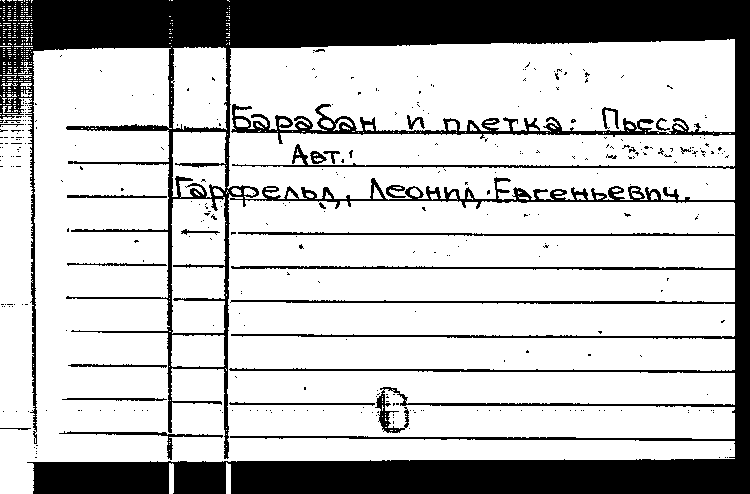 Барабан и плетка: Пьеса.
Авт.:
Гарфельд, Леонид Евгеньевич.